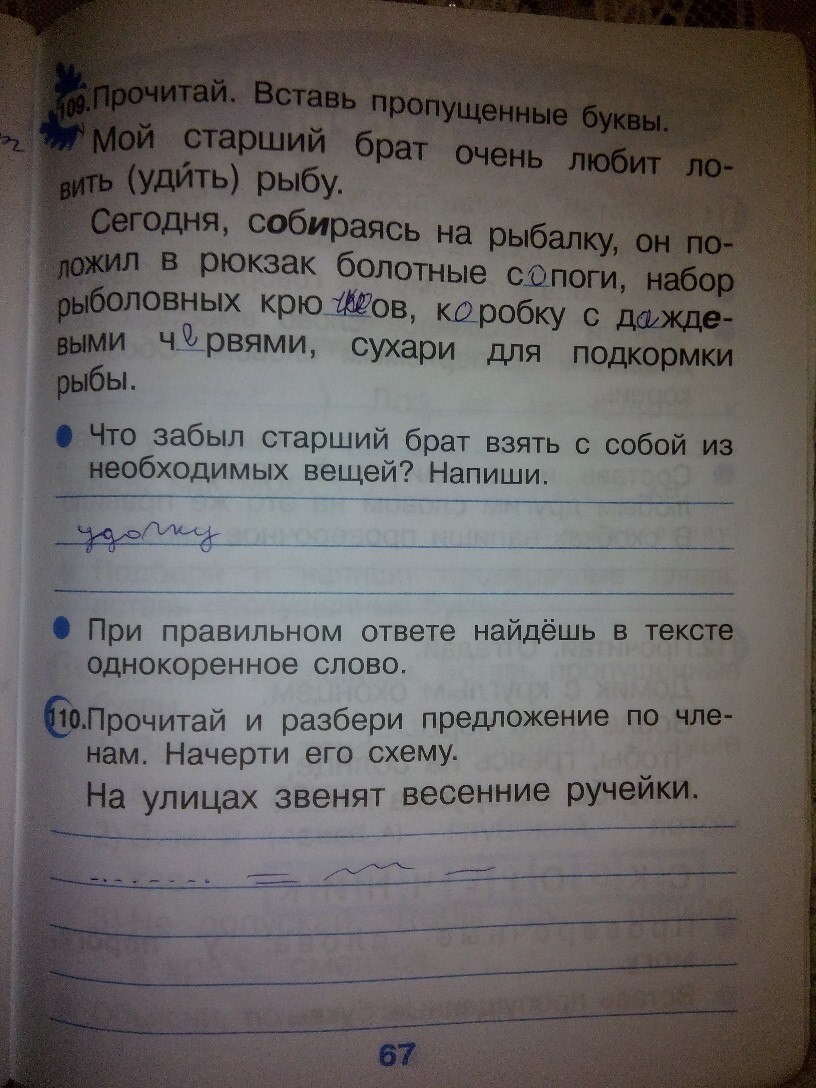 109. Прочитай. Вставь пропущенные буквы.
Мой старший брат очень любит ло-
вить (уди́ть) рыбу.
Сегодня, собираясь на рыбалку, он по-
ложил в рюкзак болотные сопоги, набор
рыболовных крючков, коробку с дажде-
выми червями, сухари для подкормки
рыбы.
Что забыл старший брат взять с собой из
необходимых вещей? Напиши.
удочку
При правильном ответе найдёшь в тексте
однокоренное слово.
110. Прочитай и разбери предложение по чле-
нам. Начерти его схему.
На улицах звенят весенние ручейки.
67